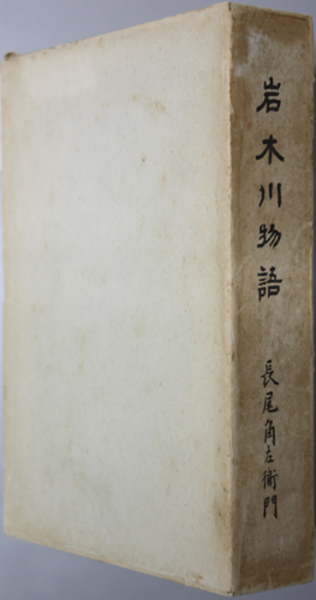 岩木川物語
長尾角左衛門